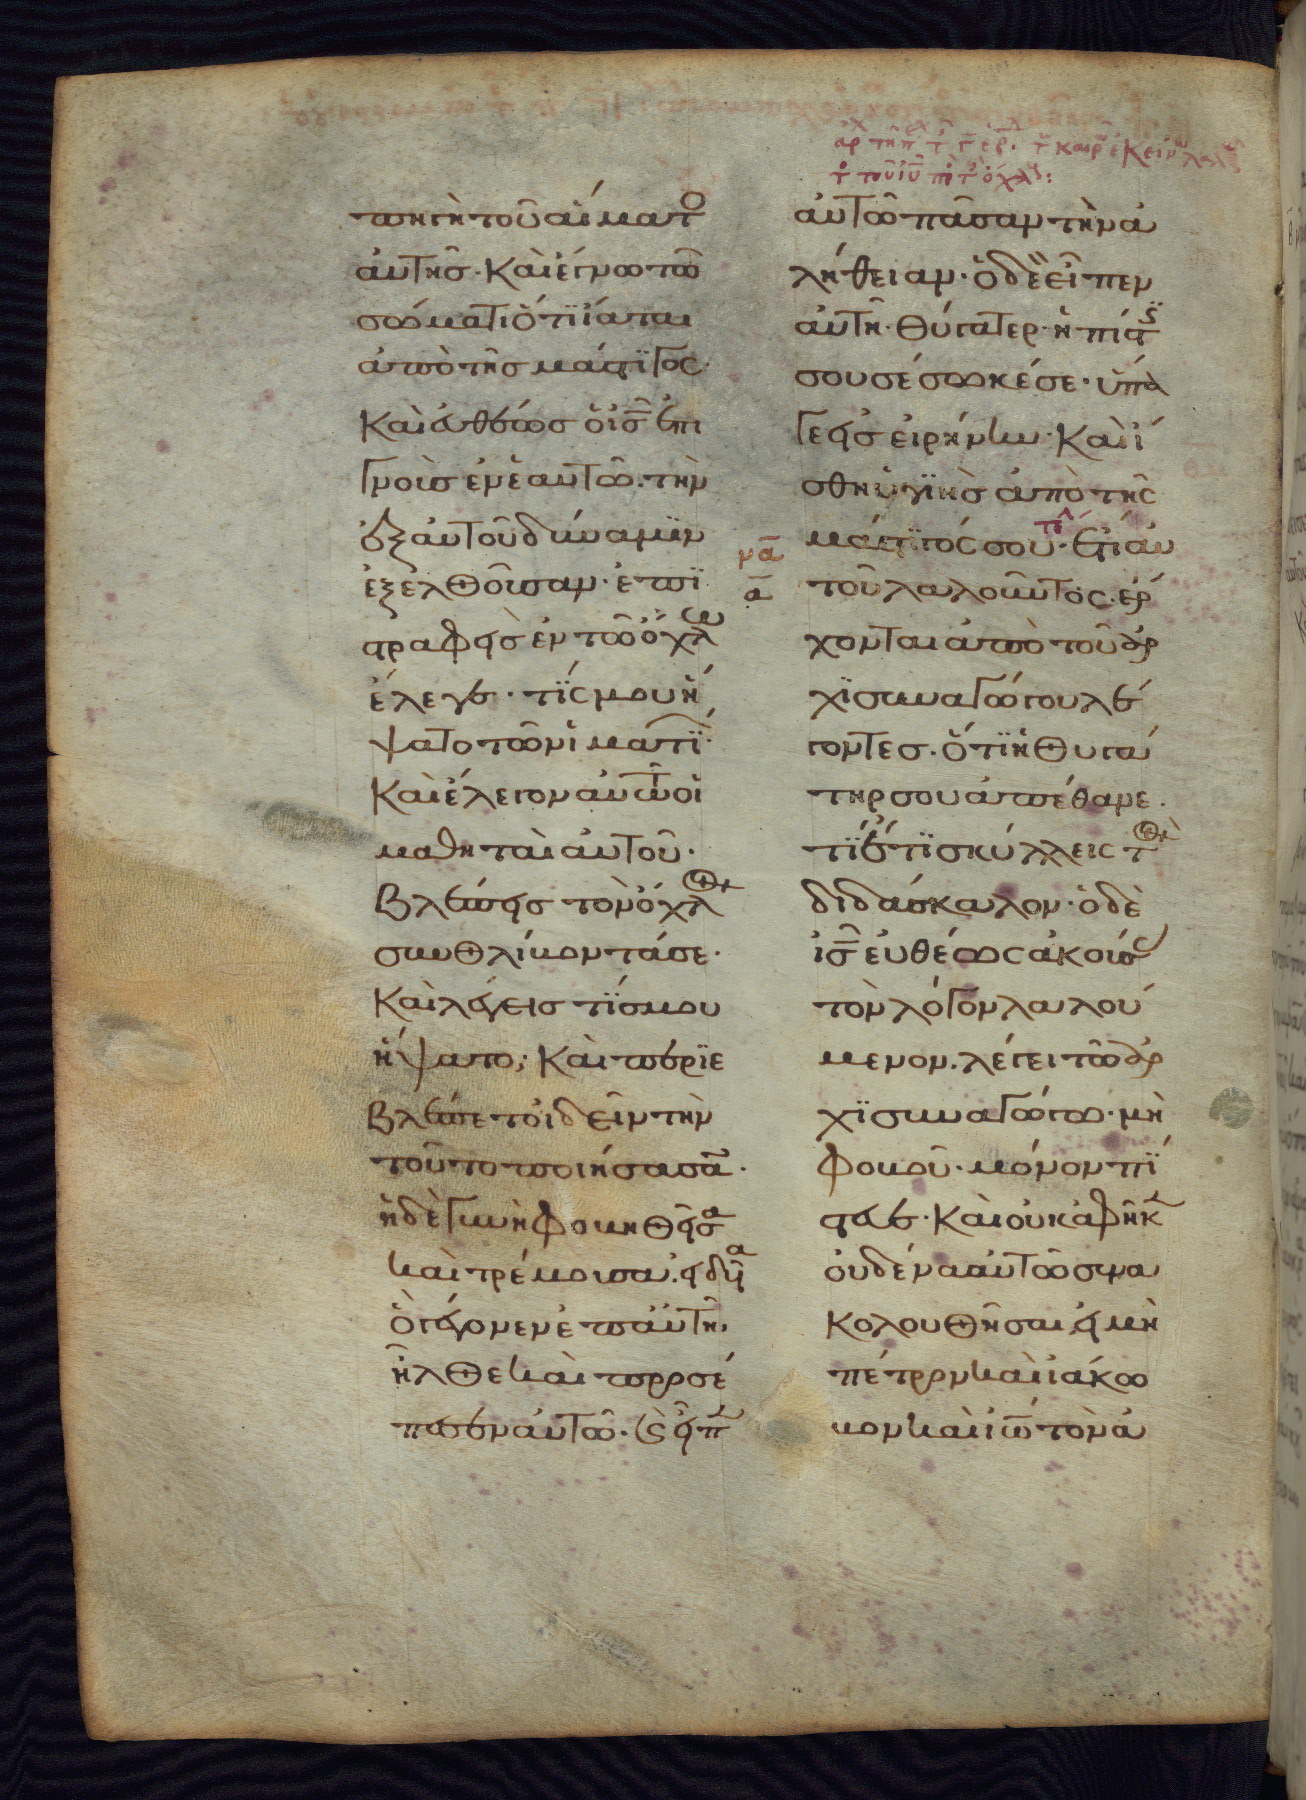 πηγὴ τοῦ αἵματο
αὐτῆς· καὶ ἔγνω τῶ
σώματι ὅτι ἴαται
ἀπὸ τῆς μάστιγος·
καὶ εὐθέως ὁ ις ἐπι
γνοὺς ἐν ἑαυτῶ· τὴν
ἐξ αὐτοῦ δύναμιν
ἐξελθοῦσαν· ἐπι
στραφεὶς ἐν τῶ ὄχλω
ἔλεγε· τίς μου ἥ
ψατο τῶν ἱματί·
καὶ ἔλεγον αὐτῶ οἱ
μαθηταὶ αὐτοῦ·
βλέπεις τὸν ὄχλον
συνθλίβοντά σε·
καὶ λέγεις τίς μου
ἥψατο; καὶ περιε
βλέπετο ἰδεῖν τὴν
τοῦτο ποιήσασα̅·
ἡ δὲ γυνὴ φοβηθεῖσα
καὶ τρέμουσα· εἰδυῖα
ὃ γέγονεν ἐπ αὐτῆ,
ἦλθε καὶ προσέ
πεσεν αὐτῶ· ϗ εἶπ
τ καιρ ἐκείν
αὐτῶ πᾶσαν τὴν ἀ
λήθειαν· ὁ δὲ εἶπεν
αὐτῆ· θύγατερ· ἡ πίστις
σου σέσωκέ σε· ὕπα
γε εἰς εἰρήνην· καὶ ἴ
σθι ὑγιὴς ἀπὸ τῆς
μάστιγός σου· ἔτι αὐ
τοῦ λαλοῦντος· ἔρ
χονται ἀπὸ τοῦ ἀρ
χισυναγώγου λέ
γοντες· ὅτι ἡ θυγά
τηρ σου ἀπέθανε·
τί ἔτι σκύλλεις τὸν
διδάσκαλον· ὁ δὲ
ις εὐθέως ἀκούσας
τὸν λόγον λαλού
μενον· λέγει τῶ ἀρ
χισυναγώγω· μὴ
φοβοῦ· μόνον πί
στευε· καὶ οὐκ ἀφῆκ
οὐδένα αὐτῶ συνα
κολουθῆσαι, εἰ μὴ
πέτρον καὶ ἰάκω
βον καὶ ἰω τὸν ἀ